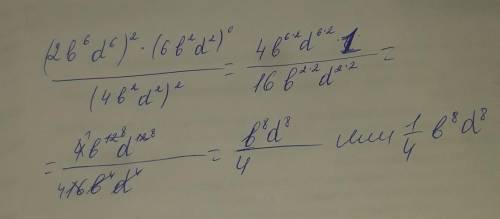 (2b⁶d⁶)² · (6b²d²)⁰ / (4b²d²)² = 4b⁶·²d⁶·²·1 / 16b²·²d²·² =
= 4̶¹b¹̶²̶⁸d¹̶²̶⁸ / 4 1̶6̶b̶⁴d̶⁴ = b⁸d⁸ / 4 или 1/4 b⁸d⁸